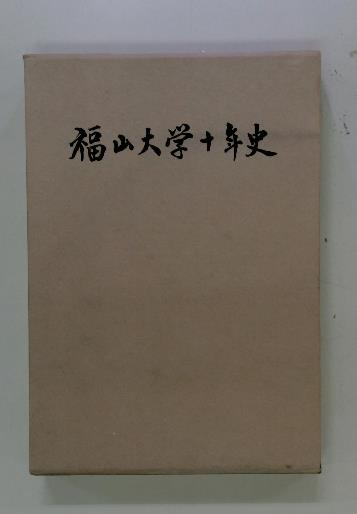 福山大学十年史